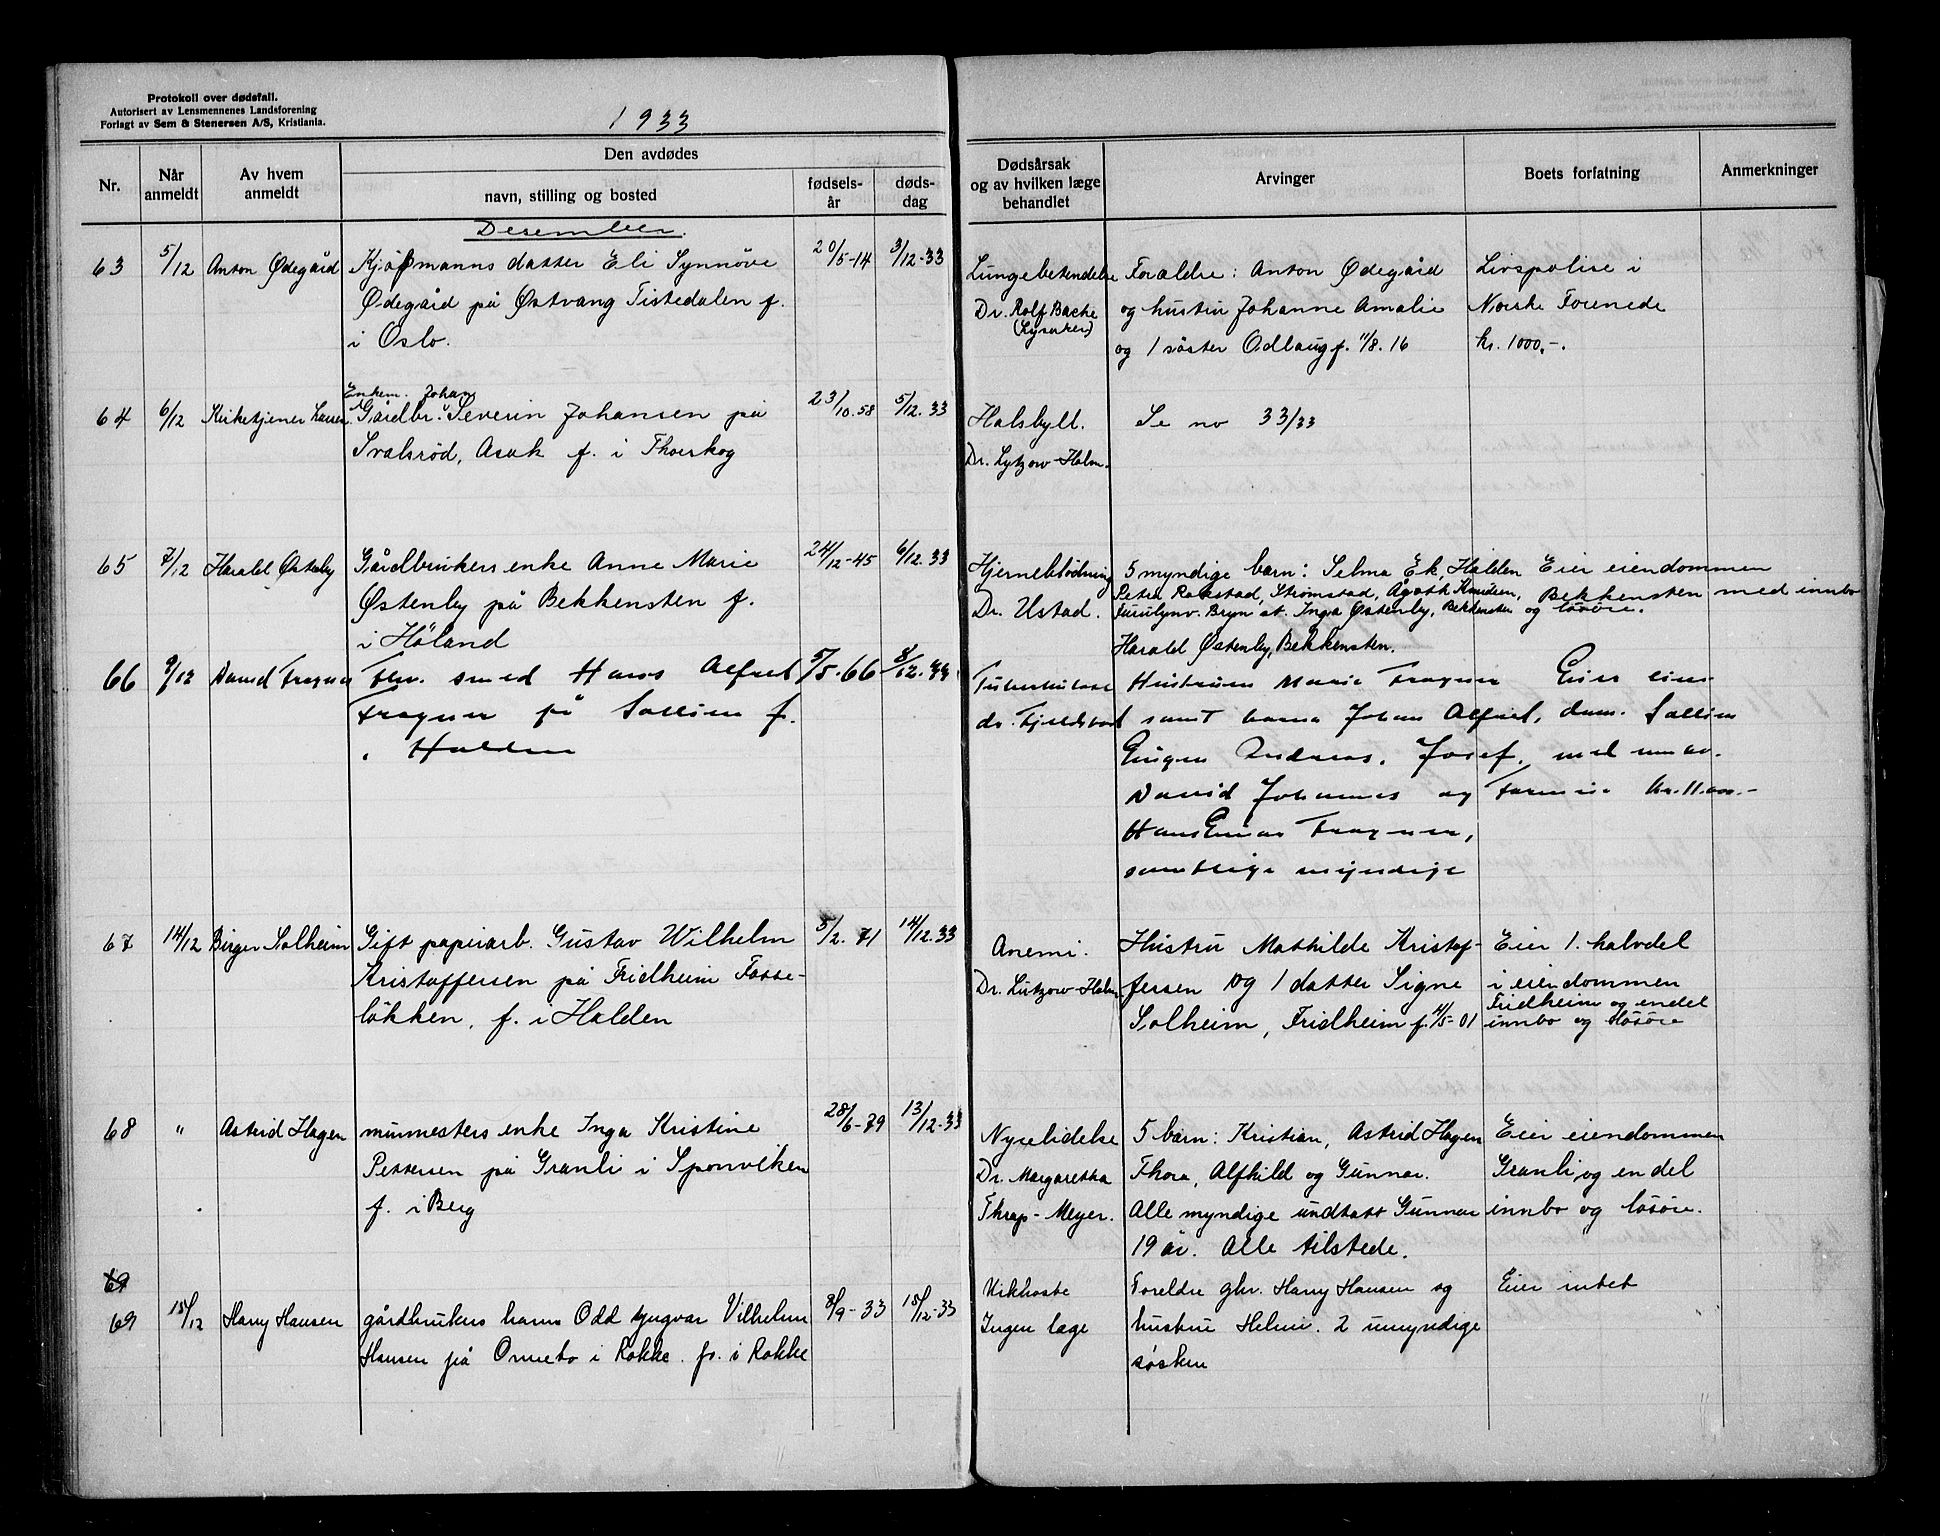 Protokoll over dødsfall.
Autorisert av Lensmennenes Landsforening
Forlagt av Sem & Stenersen A/S, Kristiania.
1933
Nr.
Når anmeldt
Av hvem anmeldt
Den avdødes
navn, stilling og bosted
fødsels-år
døds-dag
Dødsårsak og av hvilken læge behandlet
Arvinger
Boets forfatning
Anmerkninger
Desember.
63 5/12 Anton Ødegård Kjøpmanns datter Eli Synnöve 20/5-14 3/12-33 Lungebetendelse Forældre: Anton Ødegård Livspolise i
Ødegård på Østvang Tistedalen f. Dr. Rolf Bache og hustru Johanne Amalie Norske Forenede
(Lysaker)
i Oslo. og 1 söster Odlaug f. 11/8.16 kr. 1000,-.
Enkem. Johan
64 6/12 Kirketjener Larsen Gårdbr. Severin Johansen på 23/10.58 5/12.33 Halsbyll. Se no 33/33
Svalsröd, Asak f. i Thorskog Dr. Lytzow-Holm.
65 7/12 Harald Østenby Gårdbrukers enke Anne Marie 24/12-45 6/12.33 Hjerneblödning 5 myndige barn: Selma Ek, Halden Eier eiendommen
Østenby på Bekkensten f. Dr. Ustad. Peter Rakstad, Strömstad, Ågoth Knudsen, Bekkensten med innbo
Furulynv. Bryn st. Inga Østenby, Bekkensten og lösöre.
i Höland Harald Østenby, Bekkensten.
66 9/12 David Fragner Fhv. smed Hans Alfred 5/5.66 8/12.33 Tuberkulose Hustruen Marie Fragner Eier eien-
Fragner på f. dr. Fjeldstad samt barna Johan Alfred, dom.
i Halden Eugen Andreas, Josef, med
David Johannes og kr. 11.000.-
Hans Fragner,
samtlige myndige
67 14/12 Birger Solheim Gift papirarb. Gustav Wilhelm 5/2.71 14/12.33 Anemi. Hustru Mathilde Kristof- Eier 1. halvdel
Kristoffersen på Fridheim Fosse- Dr. Lutzow-Holm fersen og 1 datter Signe i eiendommen
Fridheim og endel
lökken, f. i Halden Solheim, Fridheim f. 4/5-01 innbo og lösöre
68 " Astrid Hagen murmesters enke Inga Kristine 28/6-79 13/12-33 Nyrelidelse 5 barn: Kristian, Astrid Hagen Eier eiendommen
Pettersen på Granli i Sponviken Dr. Margarethа Thora, Alfhild og Gunnar. Granli, og en del
f. i Berg Thrap-Meyer. Alle myndige undtatt Gunnar innbo og lösöre.
19 år. Alle tilstede.
69
69 15/12 Harry Hansen gårdbrukers barn Odd Yngvar Vilhelm 8/9-33 15/12-33 Kikhoste Foreldre gbr. Harry Hansen og Eier intet
Hansen på i Rokke. f. i Rokke Ingen læge hustru Helmi. 2 umyndige
søsken